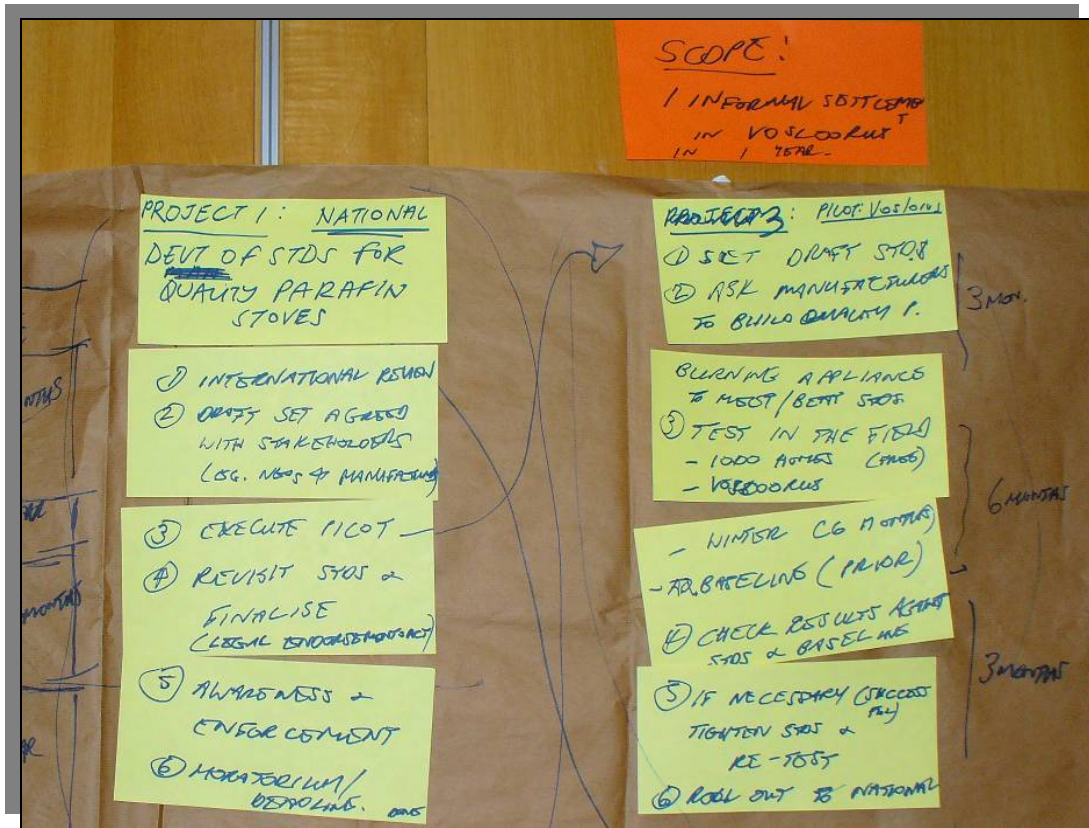 SCOPE:
1 INFORMAL SETTLEMENT
IN VOSLOORUS
IN 1 YEAR.
PROJECT 1: NATIONAL
DEVT OF STDS FOR
QUALITY PARAFIN
STOVES
① INTERNATIONAL REVIEW
② DRAFT SET AGREED
WITH STAKEHOLDERS
(LEG. NGOS & MANUFACTURERS)
③ EXECUTE PILOT
④ REVISIT STDS &
FINALISE
(LEGAL ENDORSEMENT:ACT)
⑤ AWARENESS &
ENFORCEMENT
⑥ MORATORIUM/
DEADLINE. DONE
PROJECT 3: PILOT: Vosloorus
① SET DRAFT STDS
② ASK MANUFACTURERS
TO BUILD QUALITY P.
BURNING APPLIANCE
TO MEET/BEAT STDS
③ TEST IN THE FIELD
- 1000 HOMES (FREE)
- VOSLOORUS
- WINTER (6 MONTHS)
- AQ.BASELINE (PRIOR)
④ CHECK RESULTS AGAINST
STDS & BASELINE
⑤ IF NECESSARY (SUCCESS
TIGHTEN STDS &
RE-TEST
⑥ ROLL OUT TO NATIONAL
3 MON.
6 MONTHS
3 MONTHS
NTHS
AR
MONTHS
AR